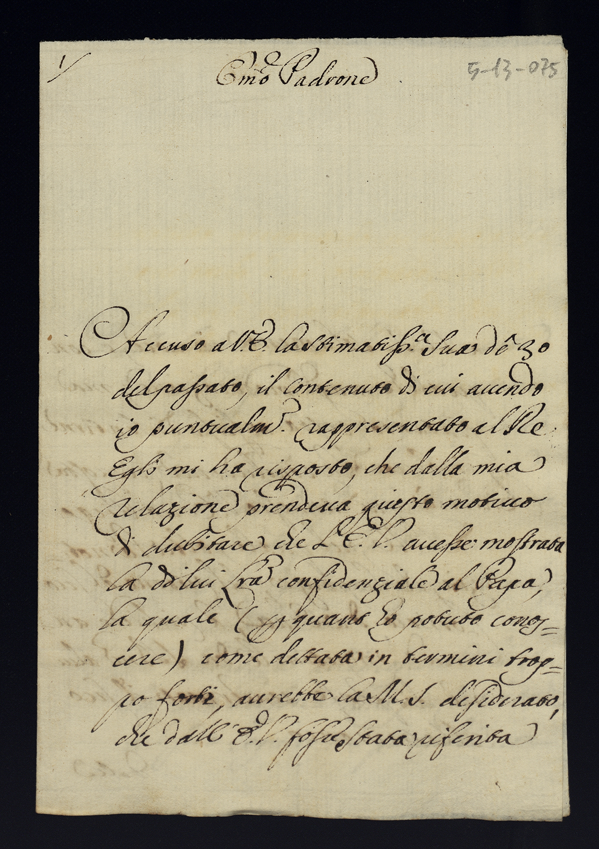 1/
5-13-075
Em.o Padrone
Accuso a V.E. la stimatiss.a Sua de 30
del passato, il contenuto di cui avendo
io puntualm.e rappresentato al Re
Egli mi ha risposto, che dalla mia
relazione prendeva questo motivo
di dubitare che l'E.V. avesse mostrata
la di lui lra confidenziale al Papa,
la quale (p quanto ho potuto conos=
cere) come dettata in termini trop=
po forti, avrebbe la M.S. desiderato,
che dall'E.V. fosse stata riferita